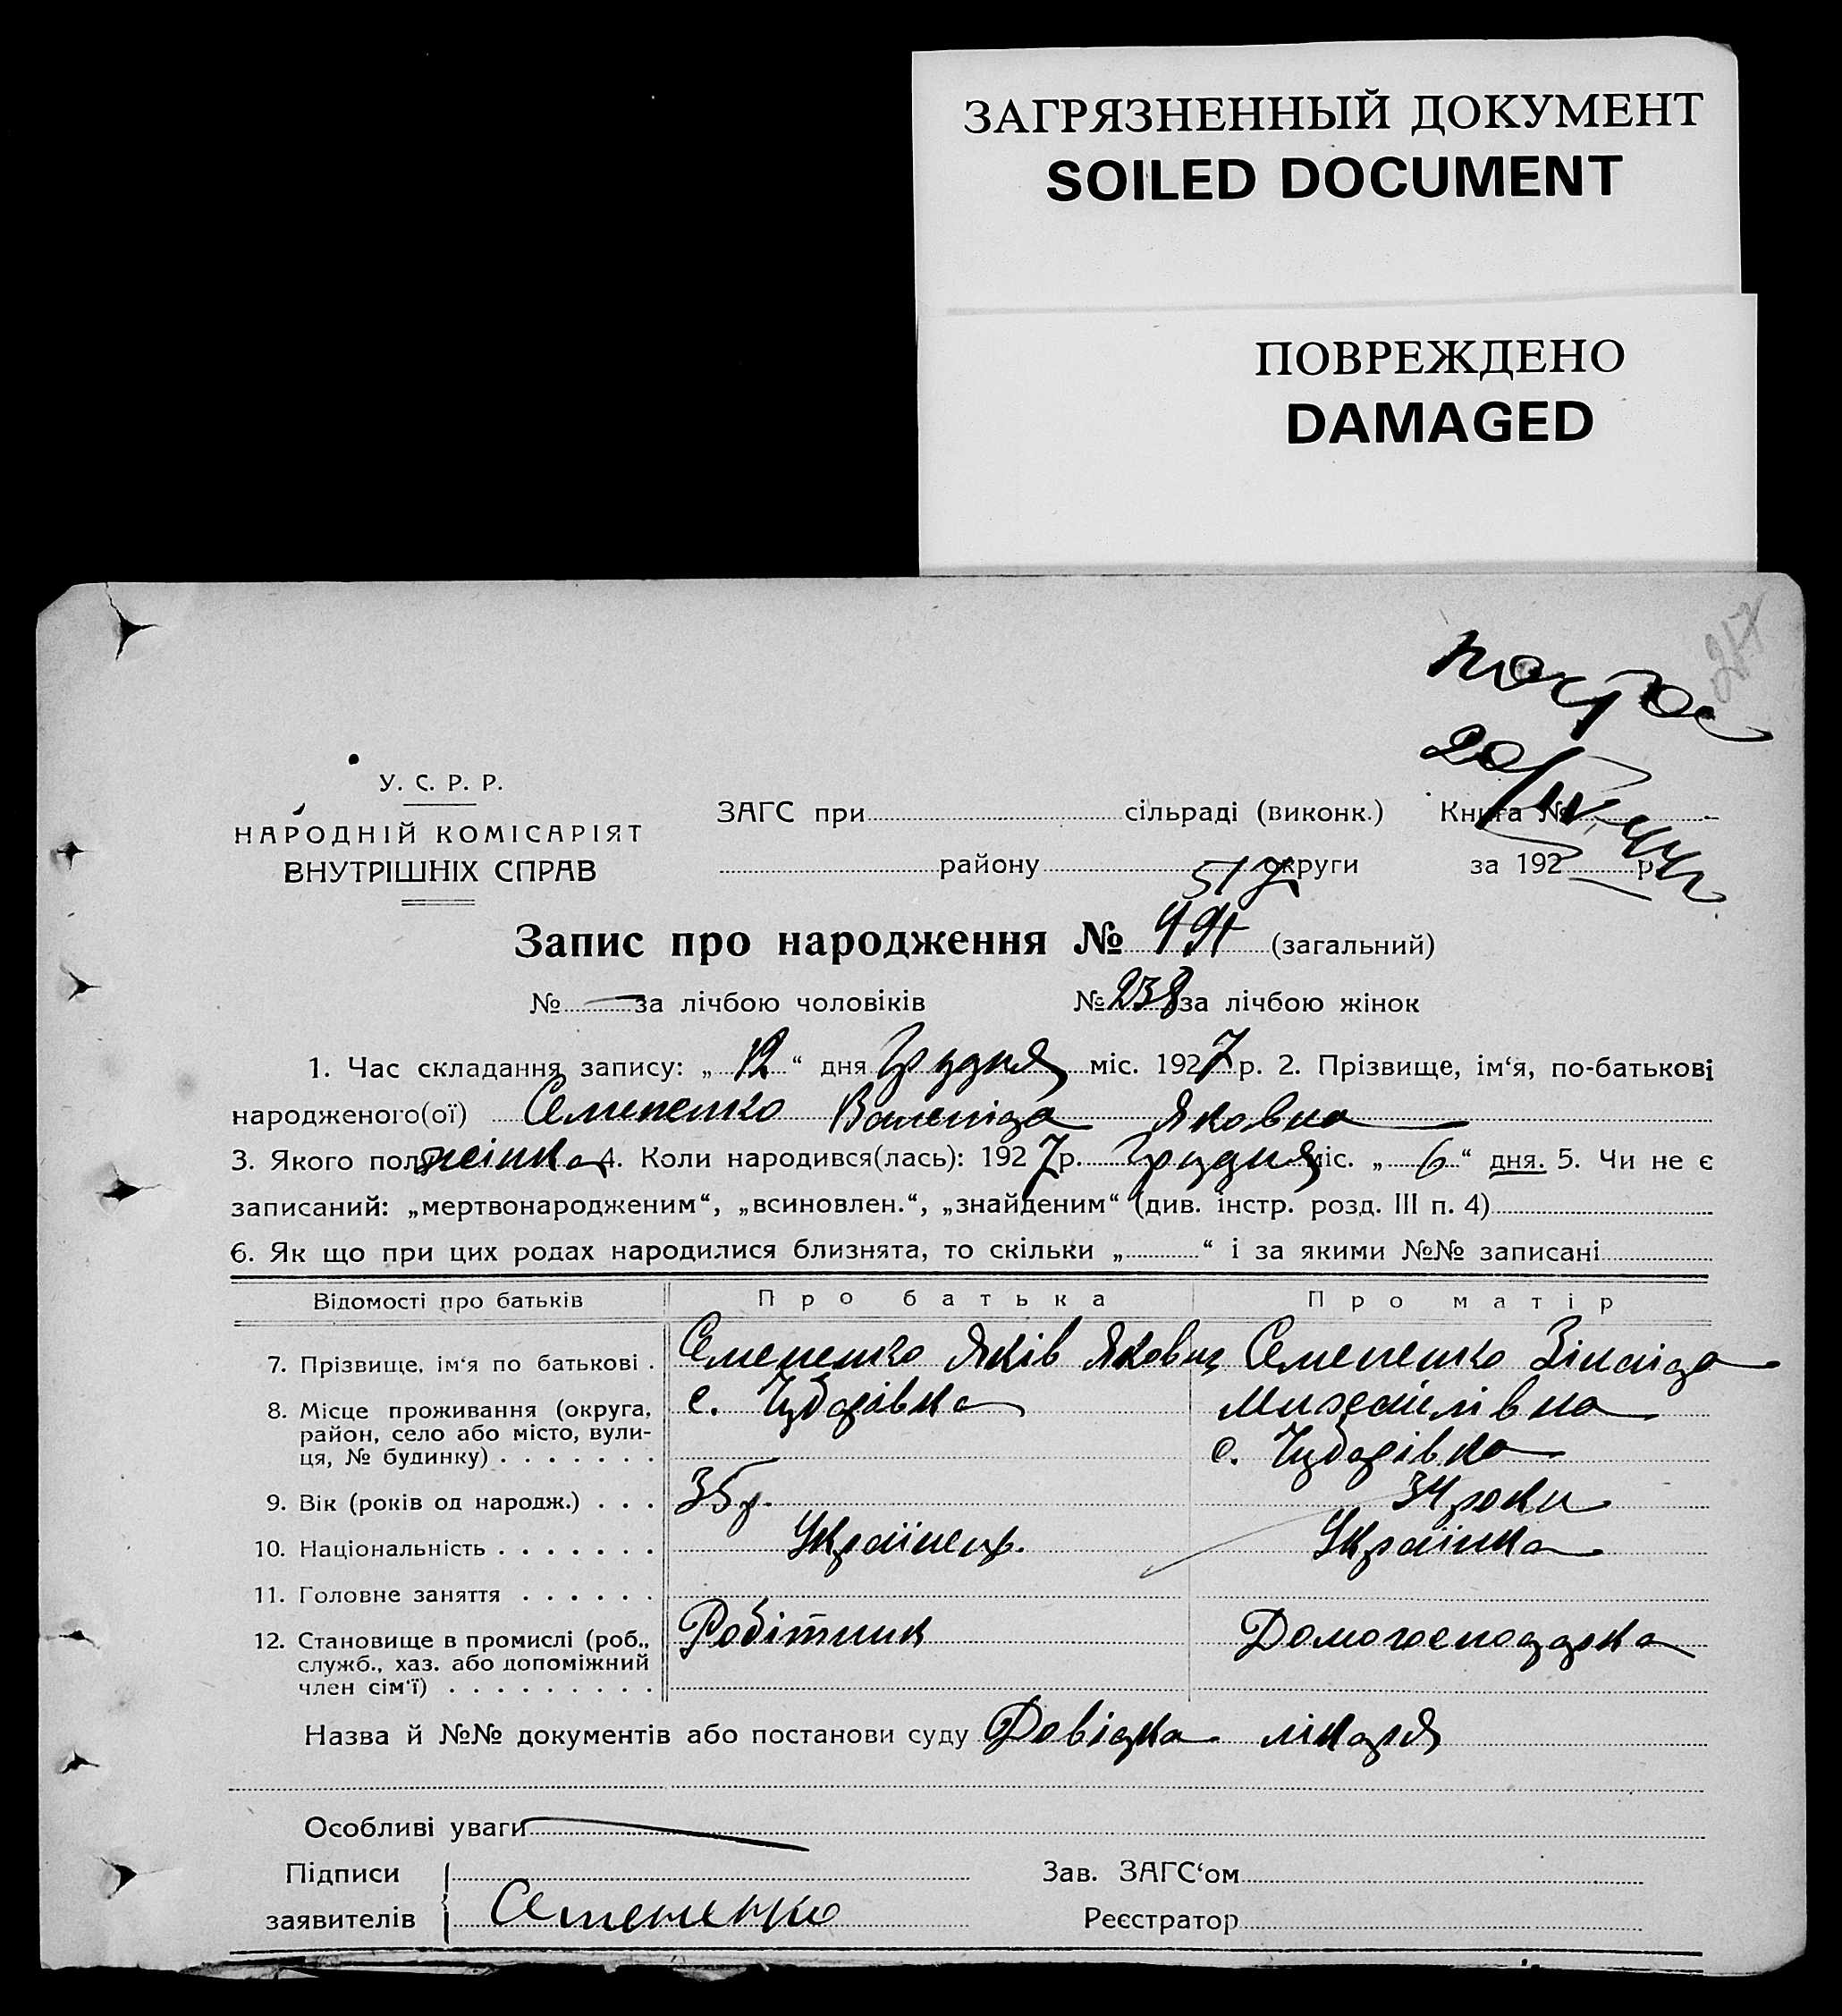 ЗАГРЯЗНЕННЫЙ ДОКУМЕНТ
SOILED DOCUMENT
ПОВРЕЖДЕНО
DAMAGED
У. С. Р. Р.
НАРОДНІЙ КОМІСАРІЯТ
ВНУТРІШНІХ СПРАВ
ЗАГС при сільраді (виконк.) Книга №
району округи за 192 р.
517
Запис про народження № 494 (загальний)
№ — за лічбою чоловіків № 238 за лічбою жінок
1. Час складання запису: „ 12 “ дня Грудня міс. 1927 р. 2. Прізвище, ім‘я, по-батькові
народженого(ої) Семененко Яковна
3. Якого полу жінка 4. Коли народився(лась): 1927 р. Грудня міс. „ 6 “ дня. 5. Чи не є
записаний: „мертвонародженим“, „всиновлен.“, „знайденим“ (див. інстр. розд. III п. 4)
6. Як що при цих родах народилися близнята, то скільки „ “ і за якими №№ записані
Відомості про батьків Про батька Про матір
7. Прізвище, ім‘я по батькові . Семененко Яків Якович Семененко Зінаіда
Михайлівна
8. Місце проживання (округа, район, село або місто, вули-ця, № будинку) . . . . . . . с. Чубарівка с. Чубарівка
9. Вік (років од народж.) . . . 35 р. 34 роки
10. Національність . . . . . . . Українець. Українка
11. Головне заняття . . . . . .
12. Становище в промислі (роб., служб., хаз. або допоміжний член сім‘ї) . . . . . . . . . Робітник Домогосподарка
Назва й №№ документів або постанови суду Довідка лікаря
Особливі уваги
Підписи Зав. ЗАГС‘ом
заявителів Семененко Реєстратор